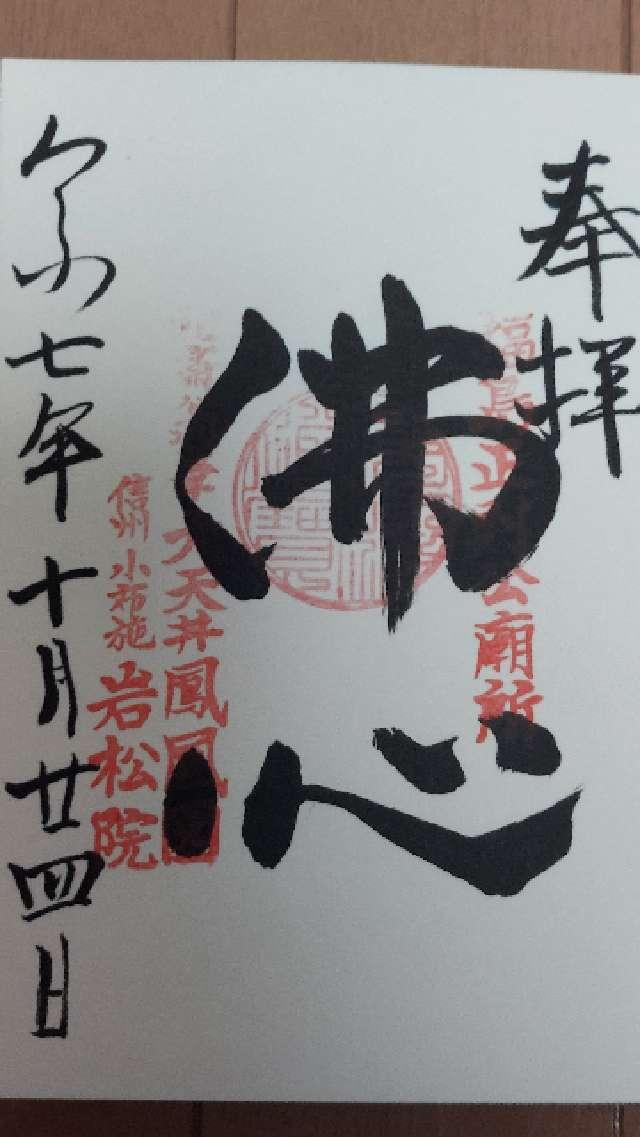 奉拝
福島正則公廟所
佛心
大天井鳳凰図
信州小布施岩松院
令和七年十月廿四日